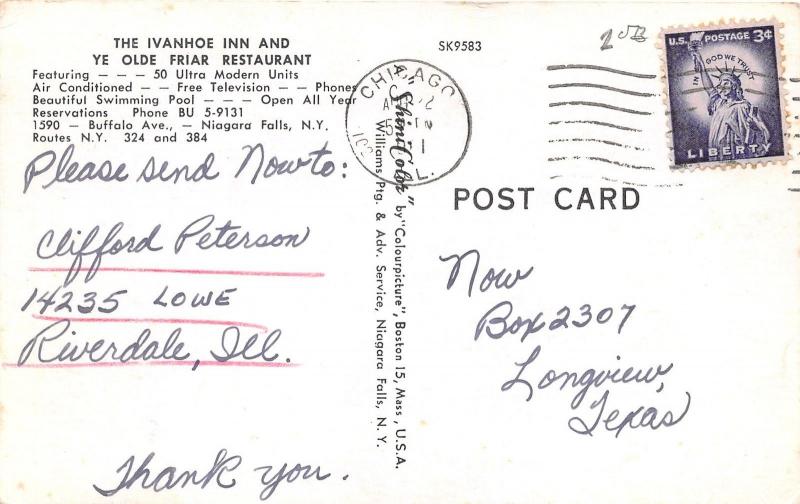 THE IVANHOE INN AND
YE OLDE FRIAR RESTAURANT
Featuring — — — 50 Ultra Modern Units
Air Conditioned — — Free Television — — Phones
Beautiful Swimming Pool — — — Open All Year
Reservations Phone BU 5-9131
1590 — Buffalo Ave., — Niagara Falls, N.Y.
Routes N.Y. 324 and 384
Please send Now to:
Clifford Peterson
14235 LOWE
Riverdale, Ill.
Thank you.
"Shini-Color" by "Colourpicture", Boston 15, Mass., U.S.A.
Williams Ptg. & Adv. Service, Niagara Falls, N.Y.
SK9583
CHICAGO
ILL.
U.S. POSTAGE 3¢
IN GOD WE TRUST
LIBERTY
POST CARD
Now
Box 2307
Longview,
Texas